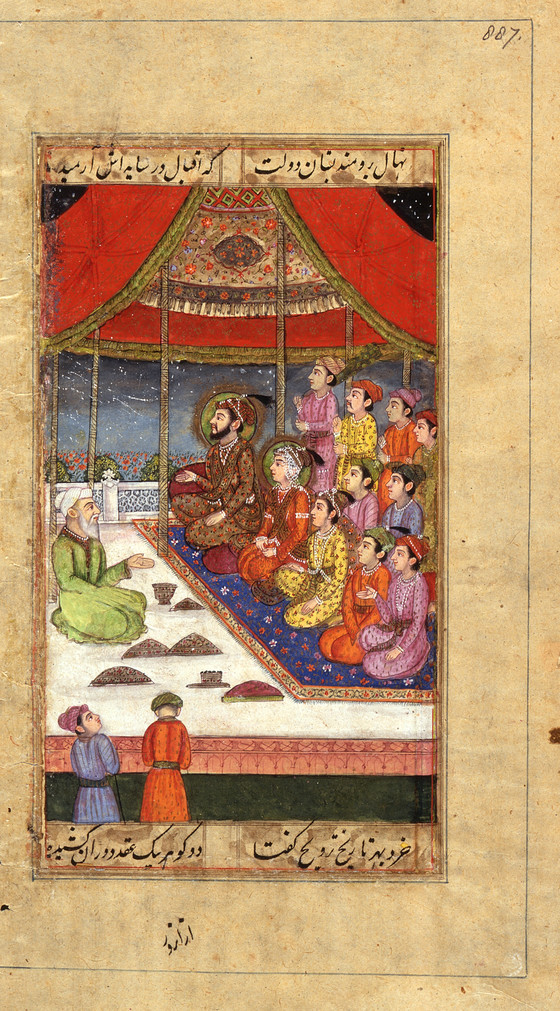 887.
نهال برومند بستان دولت که اقبال در سایه اش آرمیده
خرد بهر تاریخ تزویج گفتا دو گوهر بیک عقد دوران کشیده